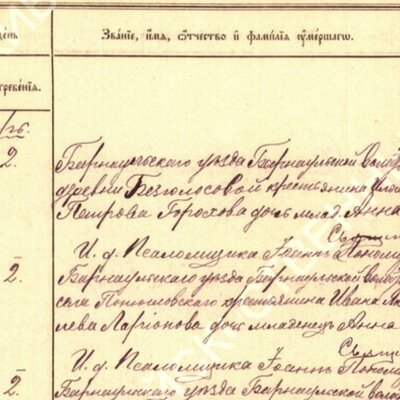 день
Званіе, имя, отчество и фамилія умершаго.
гребенія.
2. Барнаульскаго уѣзда Барнаульской волос
деревни Безголосовой крестьянина
Петрова Горохова дочь млад. Анна
Свящ
И. д. Псаломщика Іоаннъ Пономар
2. Барнаульскаго уѣзда Барнаульской волос
села крестьянина Ивана
лева Ларіонова дочь младенецъ Анна
Свящ
И. д. Псаломщика Іоаннъ Пономар
2. Барнаульскаго уѣзда Барнаульской волос